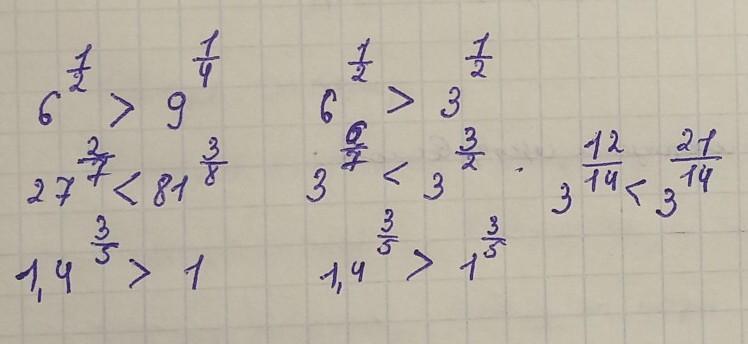 6^{1/2} > 9^{1/4} 6^{1/2} > 3^{1/2}
27^{2/7} < 81^{3/8} 3^{6/7} < 3^{3/2} . 3^{12/14} < 3^{21/14}
1,4^{3/5} > 1 1,4^{3/5} > 1^{3/5}